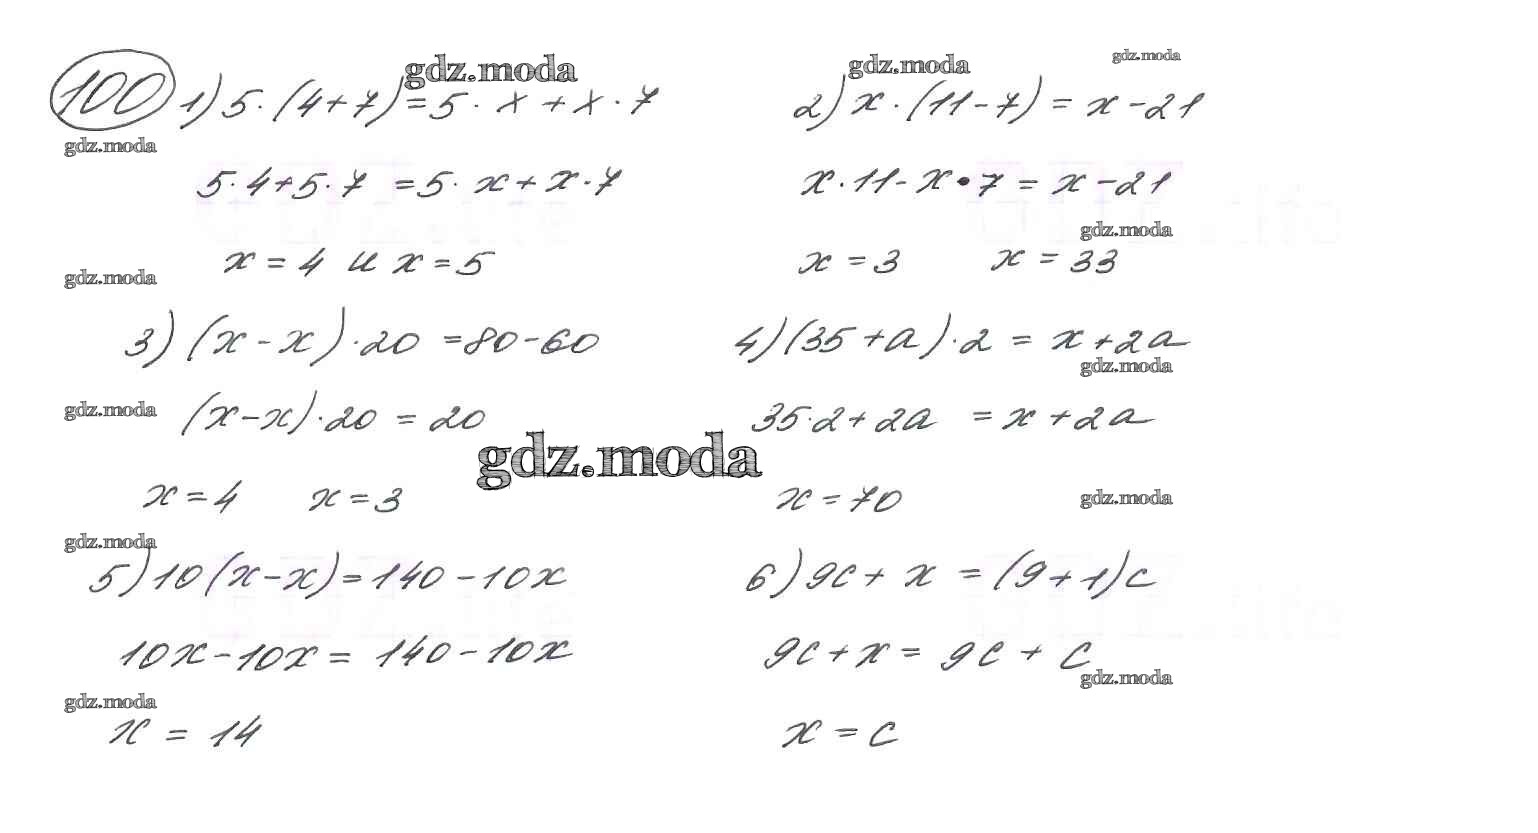 100 1) 5·(4+7)=5·x+x·7
5·4+5·7=5·x+x·7
x=4 и x=5
2) x·(11-7)=x-21
x·11-x·7=x-21
x=3 x=33
3) (x-x)·20=80-60
(x-x)·20=20
x=4 x=3
4) (35+a)·2=x+2a
35·2+2a=x+2a
x=70
5) 10(x-x)=140-10x
10x-10x=140-10x
x=14
6) 9c+x=(9+1)c
9c+x=9c+c
x=c
gdz.moda
gdz.moda
gdz.moda
gdz.moda
gdz.moda
gdz.moda
gdz.moda
gdz.moda
gdz.moda
gdz.moda
gdz.moda
gdz.moda
gdz.moda